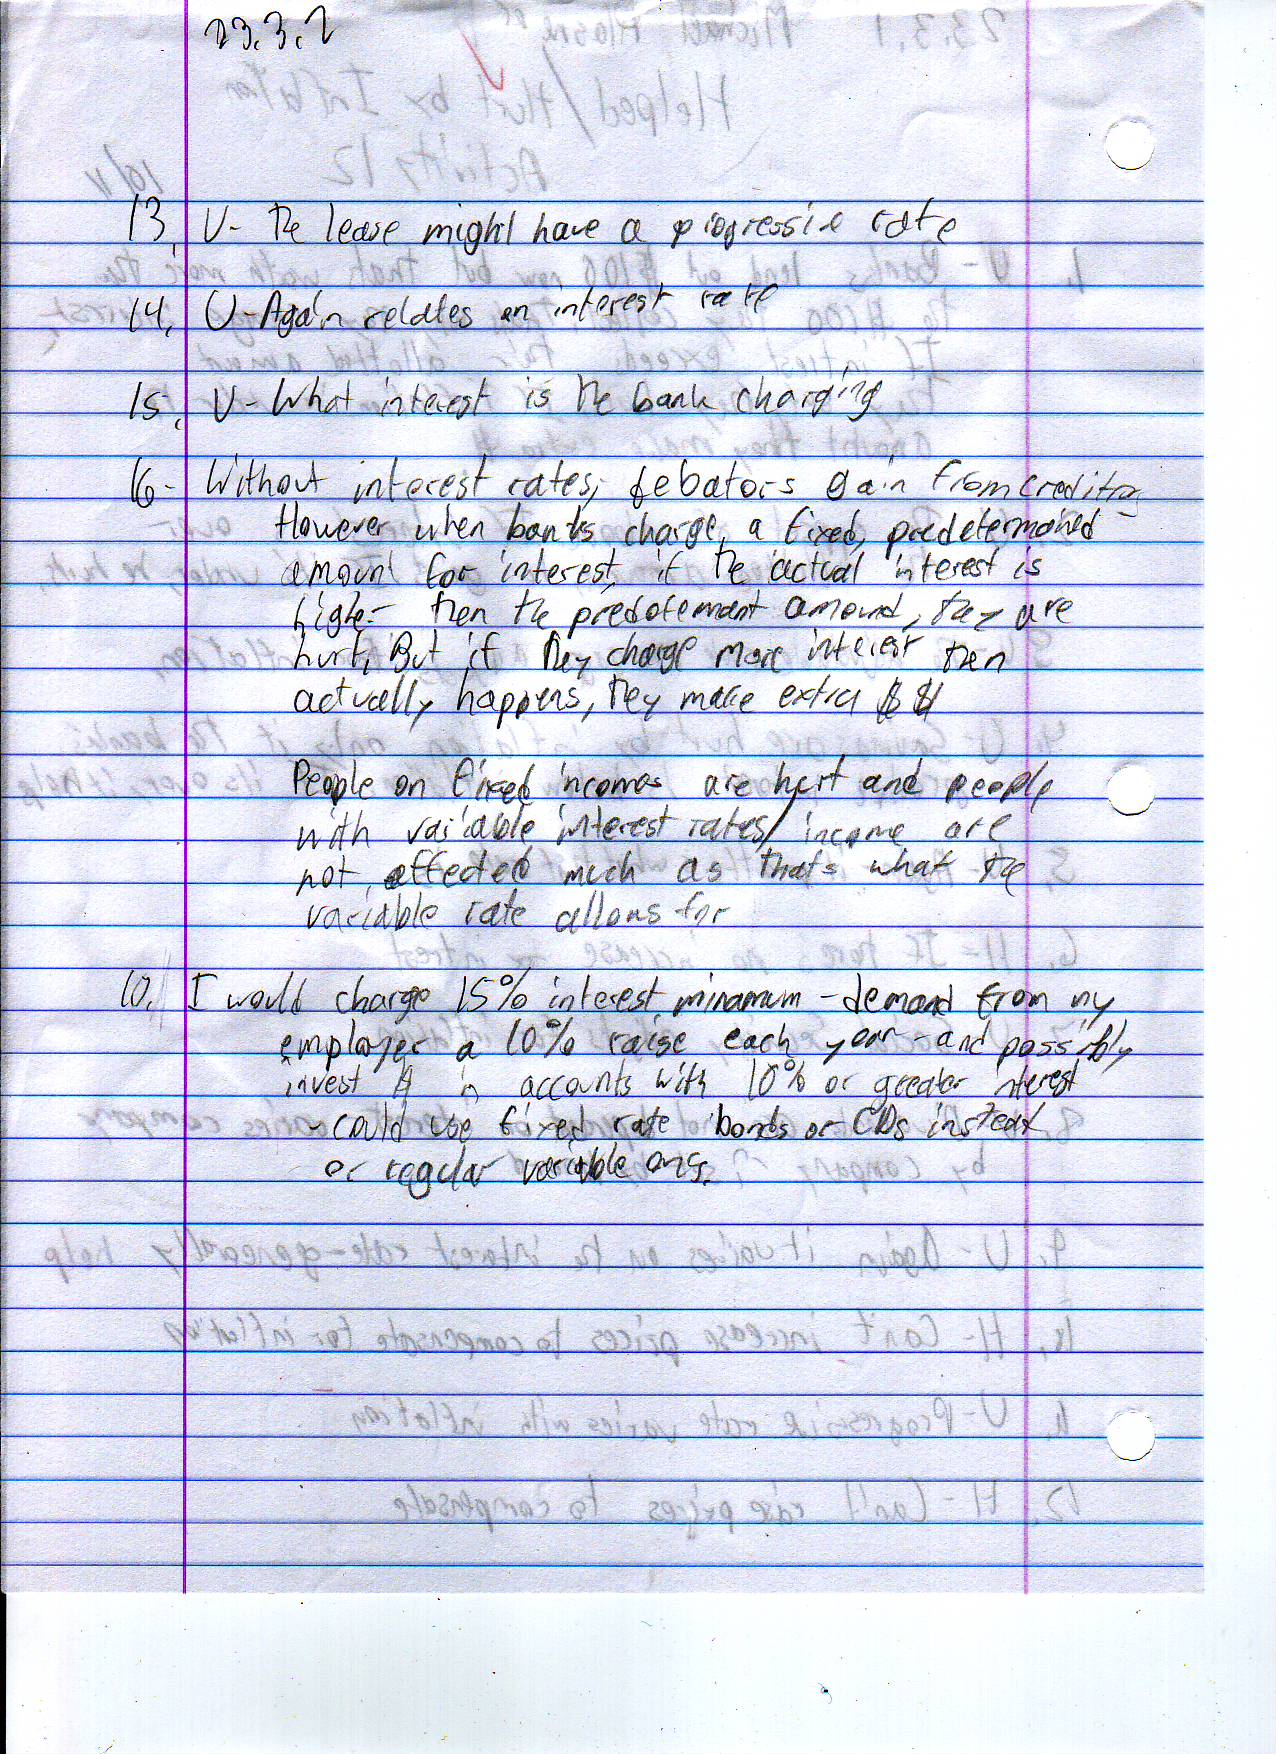 23.3.2
13. U- The lease might have a progressive rate
14. U-Again relates on interest rate
15. U-What interest is the bank charging
16- Without interest rates, debators gain from creditors
However when banks charge, a fixed, predetermained
amount for interest, if the actual interest is
higher then the predetermant amound, they are
hurt, But if they charge more interest then
actually happens, they make extra $$
People on fixed incomes are hurt and people
with variable interest rates/income are
not effected much as thats what the
variable rate allows for
10. I would charge 15% interest minamum - demand from my
employer a 10% raise each year - and possibly
invest $ in accounts with 10% or greater interest
- could use fixed rate bonds or CDs instead
or regular variable ones.